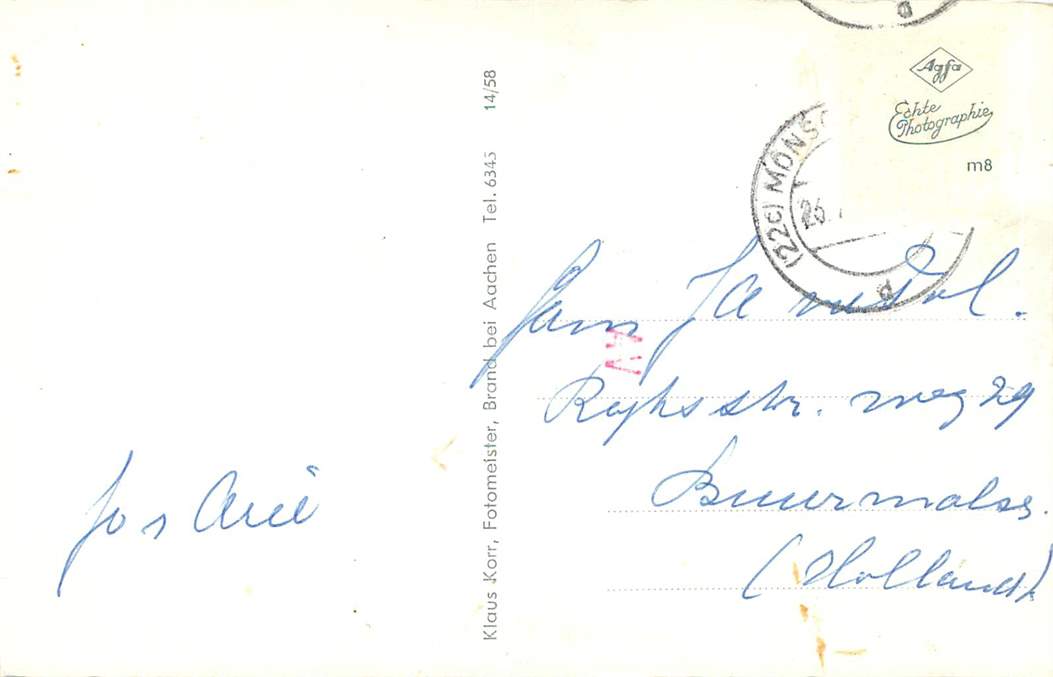 Agfa
Echte
Photographie
m8
(22c) MONSC
26.
Klaus Korr, Fotomeister, Brand bei Aachen Tel. 6345 14/58
Fam
AV
Rijksstr. weg 29
Buurmalsen.
(Holland)
Jos Arië